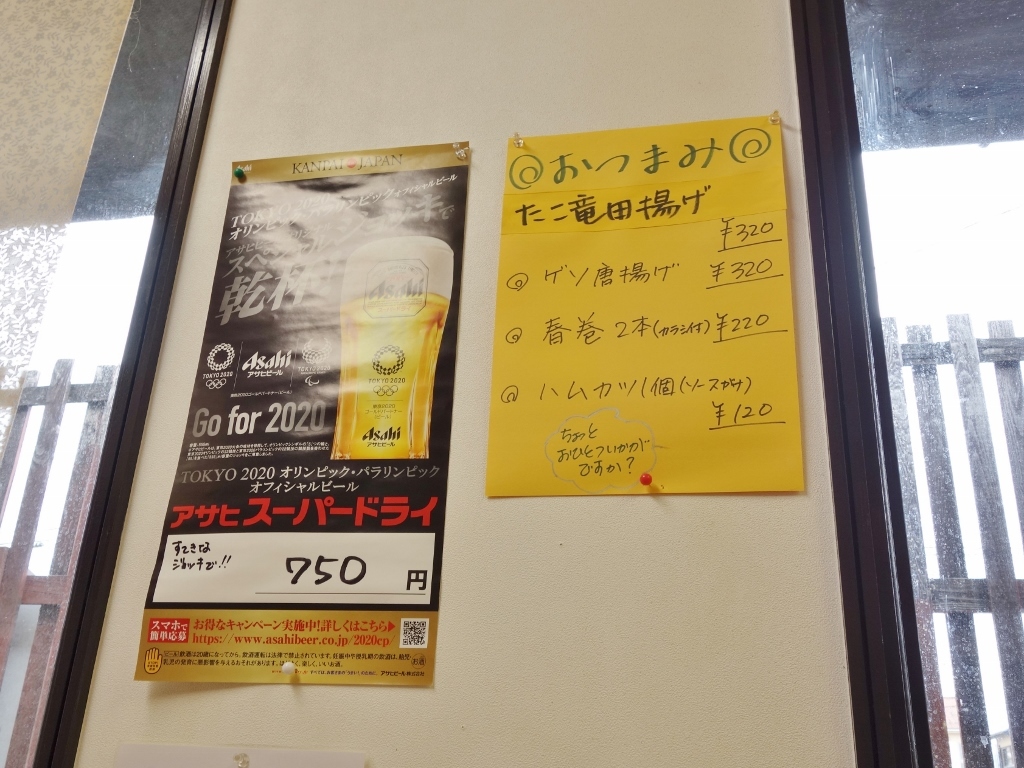 Asahi
KANPAI JAPAN
TOKYO 2020
オリンピック・パラリンピック オフィシャルビール
乾杯
Asahi
TOKYO 2020
Asahi
アサヒビール
Go for 2020
TOKYO 2020
Asahi
アサヒビール
TOKYO 2020 オリンピック・パラリンピック
オフィシャルビール
アサヒスーパードライ
すてきな
ジョッキで!!
750 円
スマホで
簡単応募
お得なキャンペーン実施中!詳しくはこちら
https://www.asahibeer.co.jp/2020cp/
アサヒビール株式会社
おつまみ
たこ竜田揚げ
¥320
ゲソ唐揚げ ¥320
春巻 2本(カラシ付) ¥220
ハムカツ1個(ソースがけ)
¥120
ちょっと
おひとついかが
ですか?